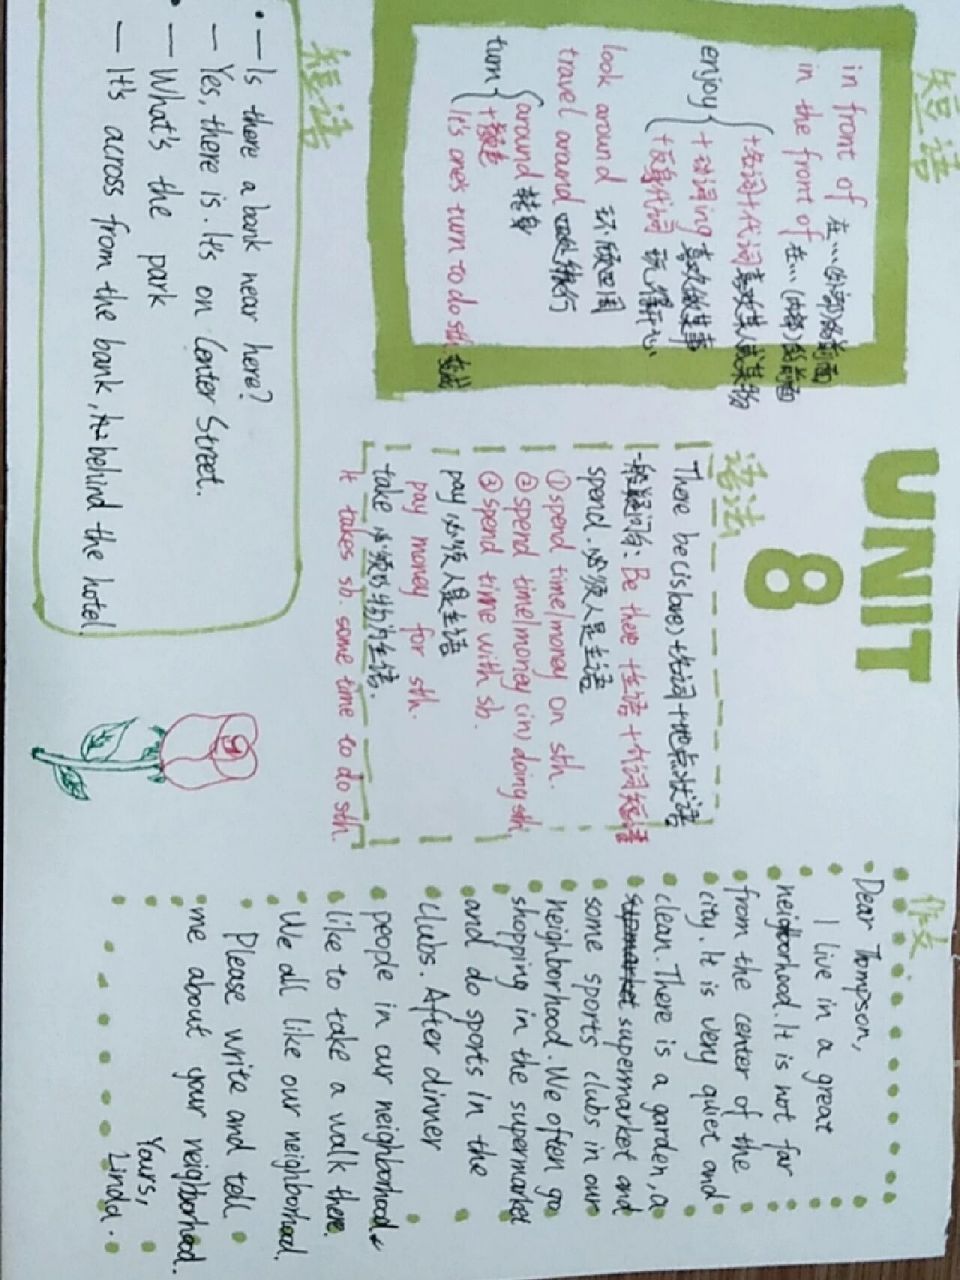 UNIT
8
短语
in front of 在…(外部)的前面
in the front of 在…(内部)的前面
enjoy
+名词+代词 喜欢某人或某物
+动词ing 喜欢做某事
+反身代词 玩得开心
look around 环顾四周
travel around 四处旅行
turn
around 转身
It's one's turn to do sth.
语法
There be(is/are)+名词+地点状语
一般疑问句: Be there +主语+介词短语
spend 必须人是主语
①spend time/money on sth.
②spend time/money (in) doing sth.
③spend time with sb.
pay 必须人是主语
pay money for sth.
take 必须以物为主语.
It takes sb. some time to do sth.
短语
— Is there a bank near here?
— Yes, there is. It's on Center Street.
— What's the park
— It's across from the bank, behind the hotel.
作文
Dear Thompson,
I live in a great
neighborhood. It is not far
from the center of the
city. It is very quiet and
clean. There is a garden, a
supermarket and
some sports clubs in our
neighborhood. We often go
shopping in the supermarket
and do sports in the
clubs. After dinner
people in our neighborhood
like to take a walk there.
We all like our neighborhood.
Please write and tell
me about your neighborhood.
Yours,
Linda.